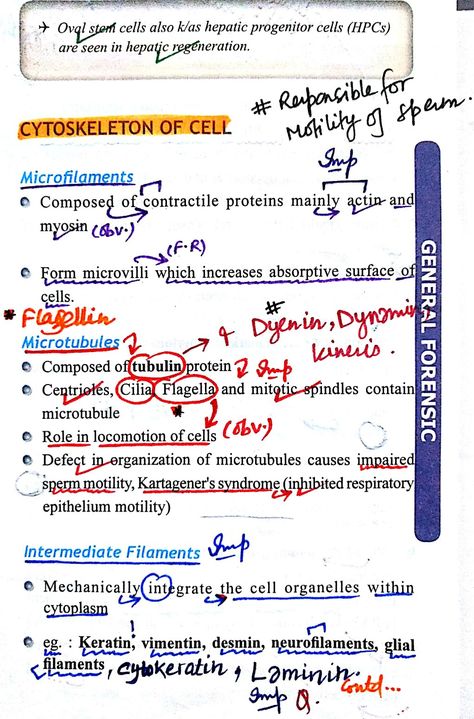 → Oval stem cells also k/as hepatic progenitor cells (HPCs)
are seen in hepatic regeneration.
# Responsible for
Motility of Sperm.
CYTOSKELETON OF CELL
Imp
Microfilaments
Composed of contractile proteins mainly actin and
myosin (obv.)
(F.R)
Form microvilli which increases absorptive surface of
cells.
GENERAL FORENSIC
* Flagellin
#
Microtubules
& Dyenin, Dynamin,
kinesis.
Composed of tubulin protein Imp
Centrioles, Cilia Flagella and mitotic spindles contain
microtubule *
Role in locomotion of cells (obv.)
Defect in organization of microtubules causes impaired
sperm motility, Kartagener's syndrome (inhibited respiratory
epithelium motility)
Intermediate Filaments Imp
Mechanically integrate the cell organelles within
cytoplasm
eg. : Keratin, vimentin, desmin, neurofilaments, glial
filaments, cytokeratin, Laminin.
Imp Q. Contd...